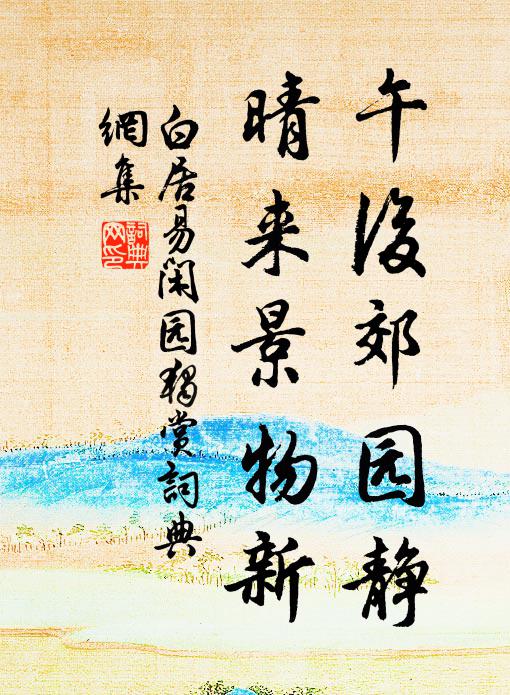 午後郊园静
晴来景物新
白居易闲园独赏詞典
網集
詞典
网印